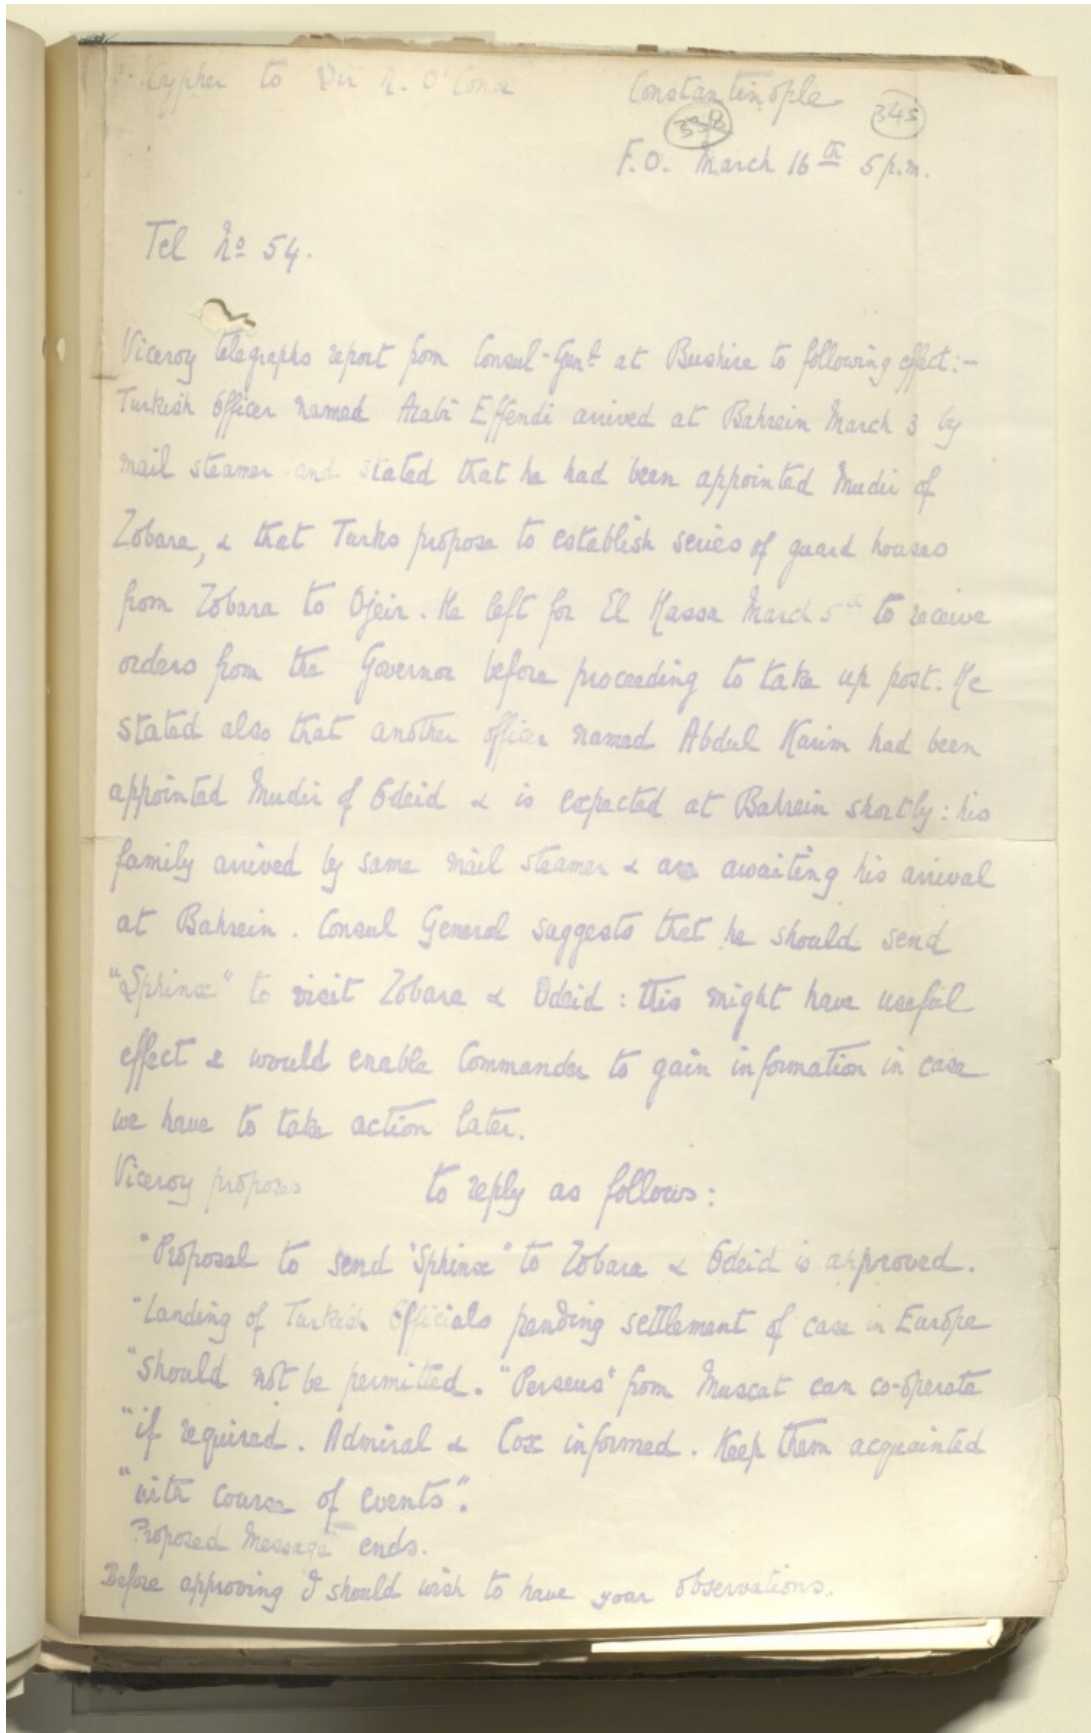 Cypher to Sir N. O'Conor Constantinople
339 345
F.O. March 16th 5 p.m.
Tel No 54.
Viceroy telegraphs report from Consul-Genl at Bushire to following effect:-
Turkish Officer named Arabi Effendi arrived at Bahrein March 3 by
mail steamer and stated that he had been appointed Mudir of
Zobara, & that Turks propose to establish series of guard houses
from Zobara to Ojeir. He left for El Hassa March 5th to receive
orders from the Governor before proceeding to take up post. He
stated also that another officer named Abdul Karim had been
appointed Mudir of Odeid & is expected at Bahrein shortly: his
family arrived by same mail steamer & are awaiting his arrival
at Bahrein. Consul General suggests that he should send
"Sphinx" to visit Zobara & Odeid: this might have useful
effect & would enable Commander to gain information in case
we have to take action later.
Viceroy proposes to reply as follows:
"Proposal to send "Sphinx" to Zobara & Odeid is approved.
"Landing of Turkish Officials pending settlement of case in Europe
"should not be permitted. "Perseus" from Muscat can co-operate
"if required. Admiral & Cox informed. Keep them acquainted
"with course of events".
Proposed Message ends.
Before approving I should wish to have your observations.